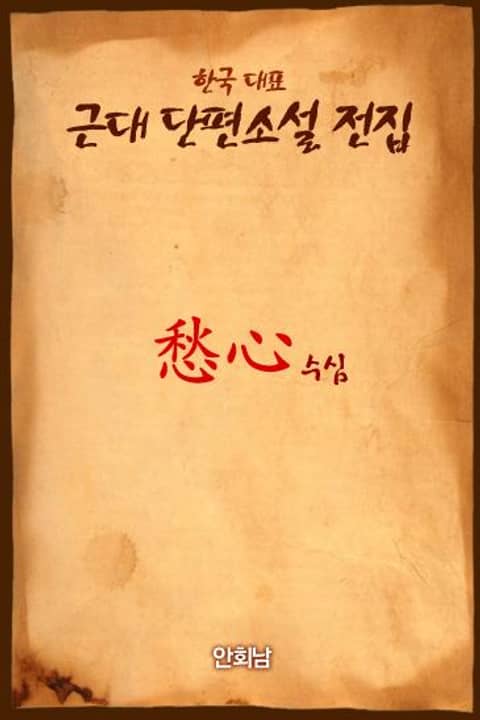 한국 대표
근대 단편소설 전집
愁心 수심
안회남